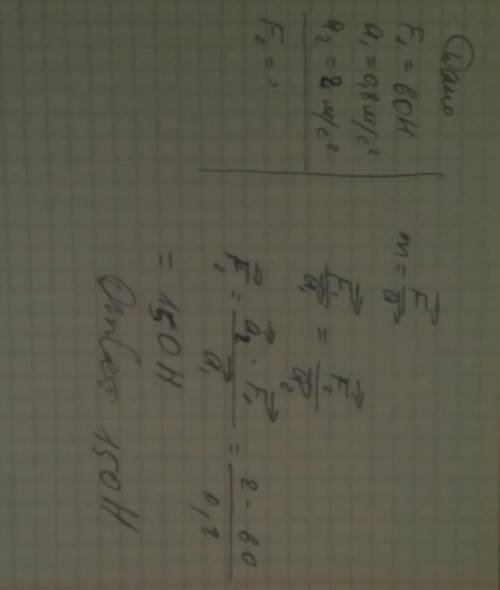 Дано
F₁ = 60Н
a₁ = 0,8 м/с²
a₂ = 2 м/с²
F₂ = ?
m = F⃗/a⃗
F⃗₁/a⃗₁ = F⃗₂/a⃗₂
F⃗₂ = a⃗₂ · F⃗₁/a⃗₁ = 2 · 60/0,8
= 150Н
Ответ 150Н